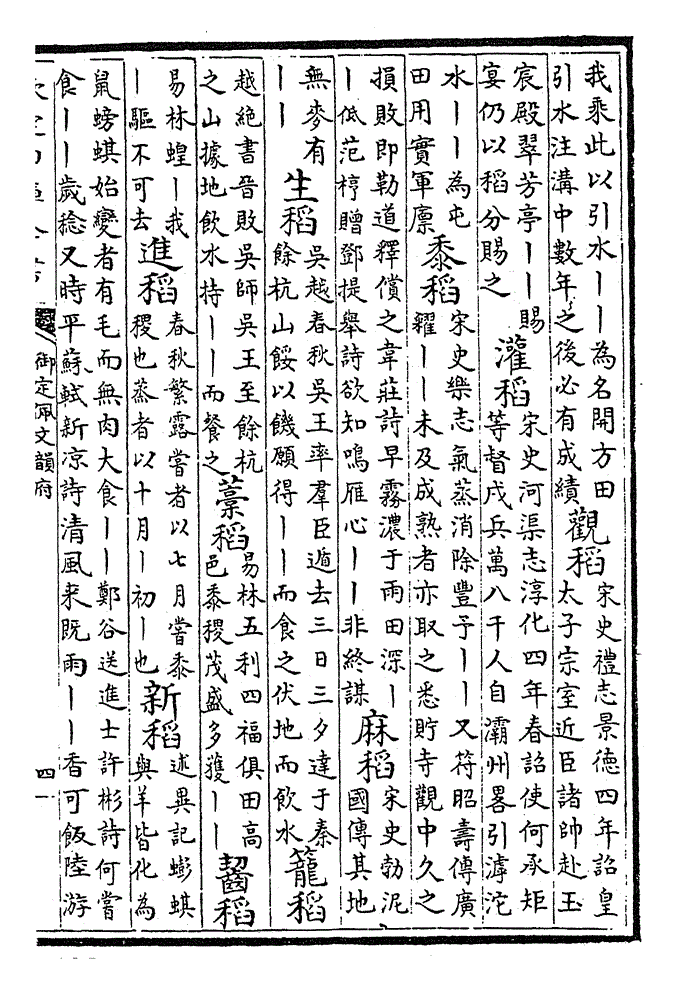 我乘此以引水丨丨為名開方田
引水注溝中數年之後必有成績
觀稻
宋史禮志景德四年詔皇
太子宗室近臣諸帥赴玉
宸殿翠芳亭丨丨賜
宴仍以稻分賜之
灌稻
宋史河渠志淳化四年春詔使何承矩
等督戍兵萬八千人自灞州畧引滹沱
水丨丨為屯
田用實軍廪
黍稻
宋史樂志氣蒸消除豐予丨丨又符昭壽傳廣
糴丨丨未及成熟者亦取之悉貯寺觀中久之
損敗即勒道釋償之韋莊詩早霧濃于雨田深丨
丨低范梈贈鄧提舉詩欲知鳴雁心丨丨非終謀
麻稻
宋史勃泥
國傳其地
無麥有
丨丨
生稻
吳越春秋吳王率羣臣遁去三日三夕達于秦
餘杭山餒以饑願得丨丨而食之伏地而飲水
籠稻
越絶書晉敗吳師吳王至餘杭
之山據地飲水持丨丨而餐之
藁稻
易林五利四福俱田高
邑黍稷茂盛多獲丨丨
齧稻
易林蝗丨我
丨驅不可去
進稻
春秋繁露嘗者以七月嘗黍
稷也蒸者以十月丨初丨也
新稻
述異記蟛蜞
與羊皆化為
鼠螃蜞始變者有毛而無肉大食丨丨鄭谷送進士許彬詩何嘗
食丨丨歲稔又時平蘇軾新凉詩清風来既雨丨丨香可飯陸游
御定佩文韻府
四一